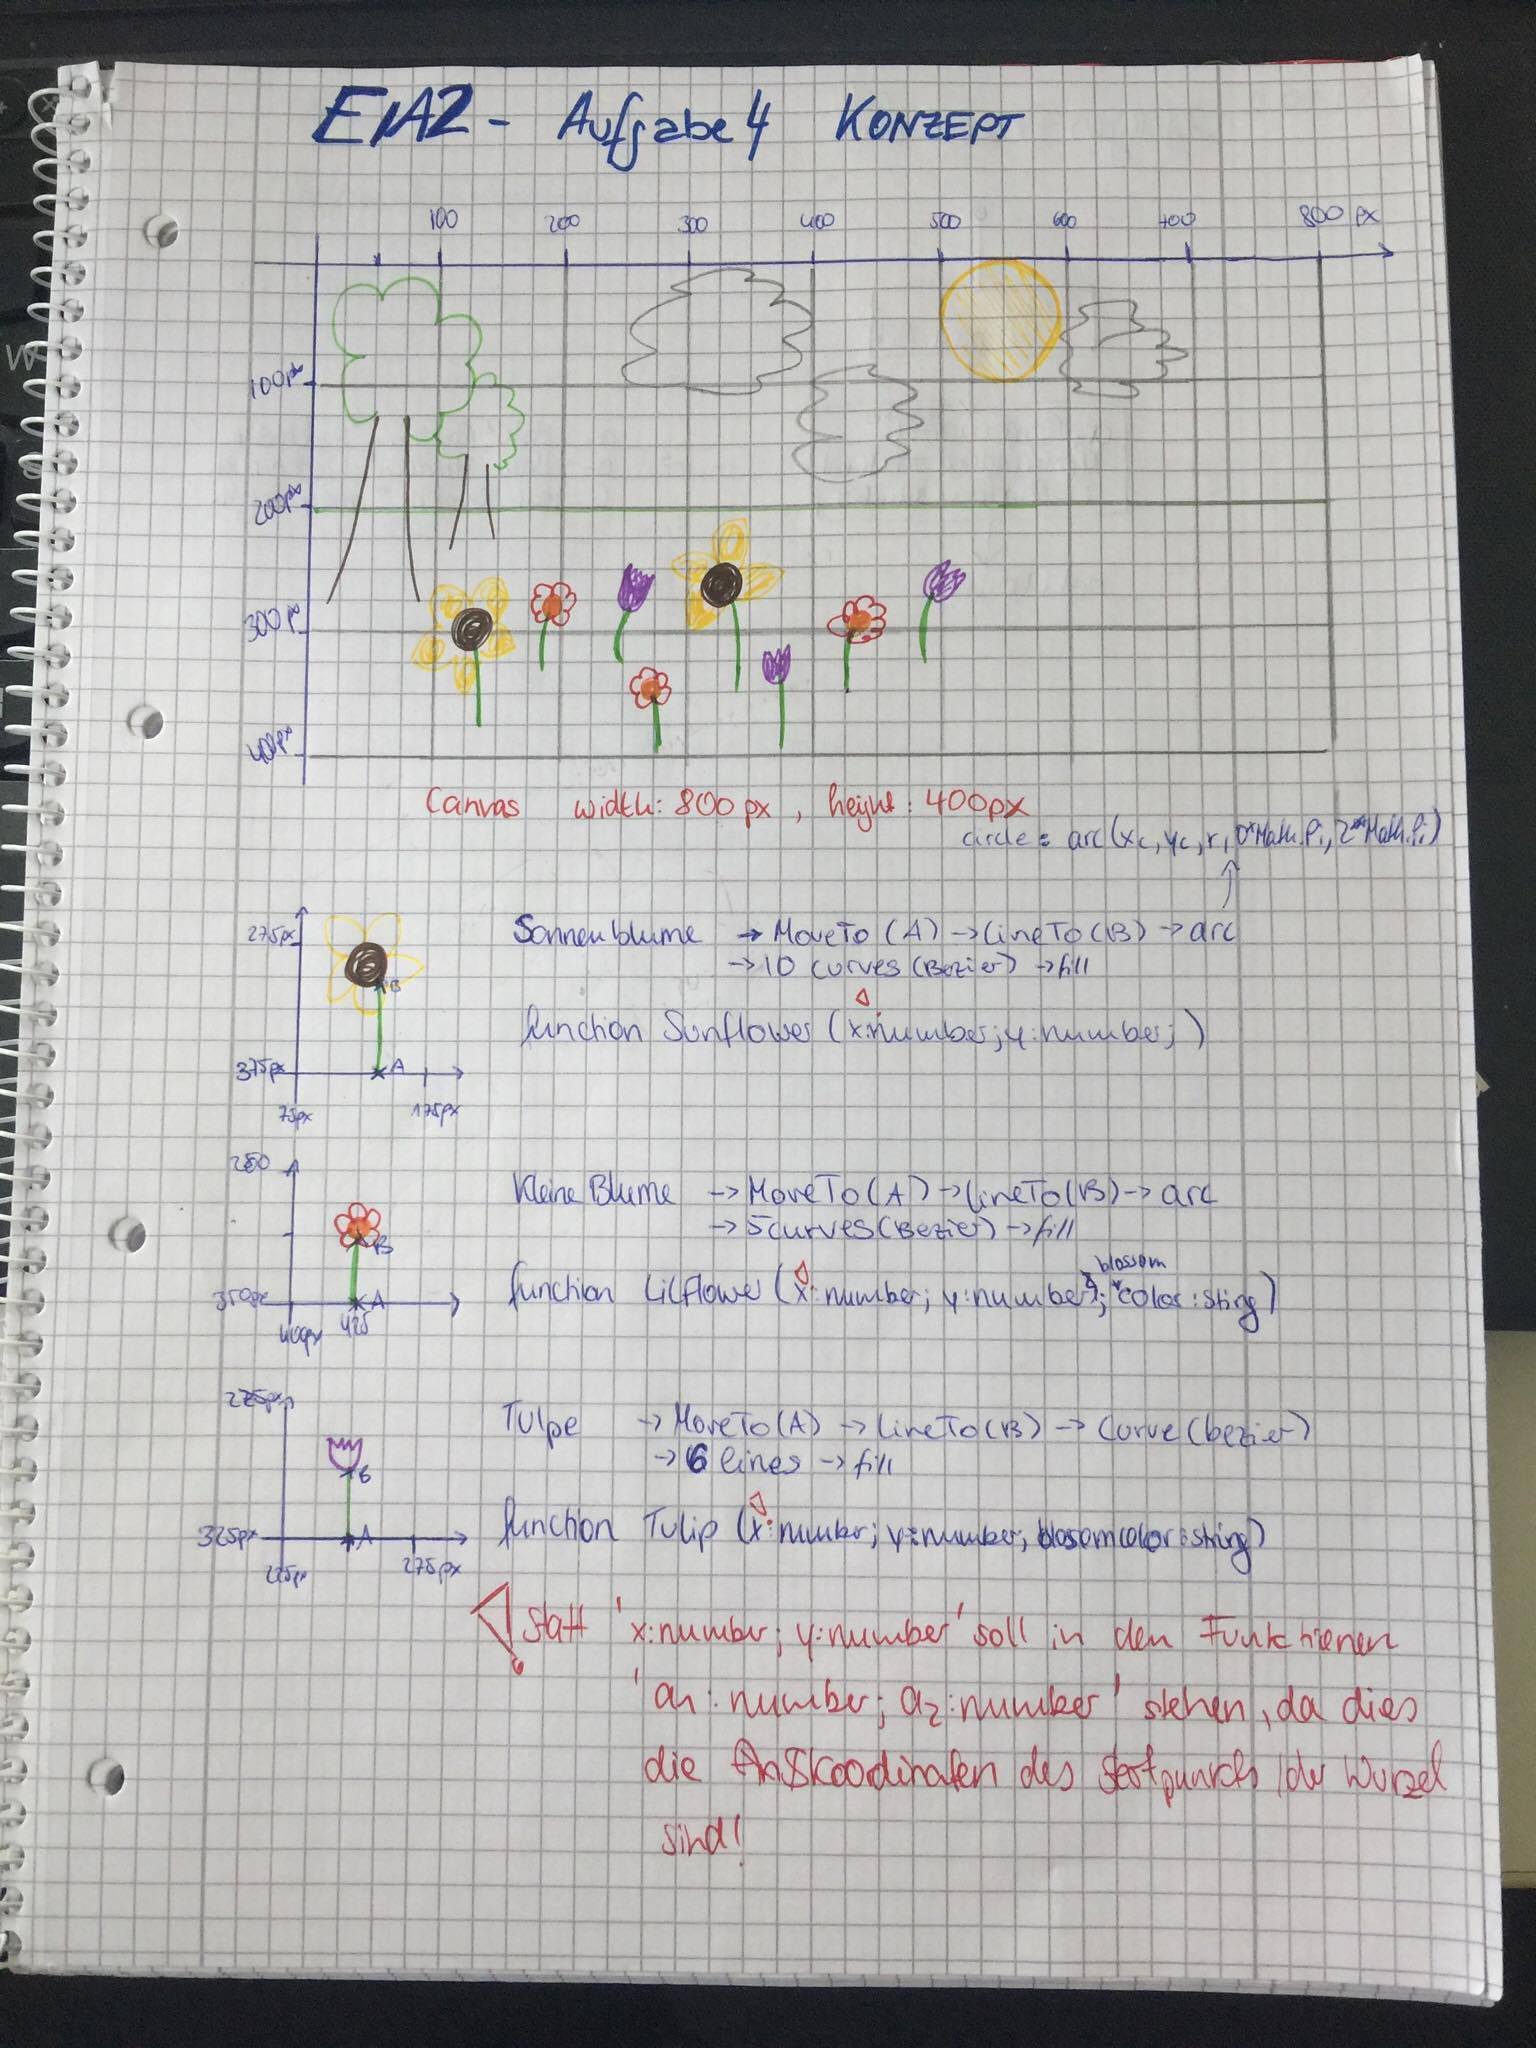 EIA2 - Aufgabe 4 KONZEPT
100 200 300 400 500 600 700 800 px
100px
200px
300 p
400px
Canvas width: 800px, height: 400px
circle = arc(xc, yc, r, 0*Math.Pi, 2*Math.Pi)
275px
Sonnenblume → MoveTo(A) → LineTo(B) → arc
→ 10 curves(Bezier) → fill
B
function Sunflower (x:number; y:number; )
375px A
75px 175px
250
Kleine Blume → MoveTo(A) → LineTo(B) → arc
→ 5 curves(Bezier) → fill
B
blossom
function Lilflower (x:number; y:number; color:sting)
350px A
400px 425
225px
Tulpe → MoveTo(A) → LineTo(B) → Curve(bezier)
→ 6 lines → fill
B
function Tulip (x:number; y:number; blosomcolor:string)
325px A
225px 275px
! Statt 'x:number; y:number' soll in den Funktionen
'a1:number; a2:number' stehen, da dies
die koordinaten des /der Wurzel
sind!